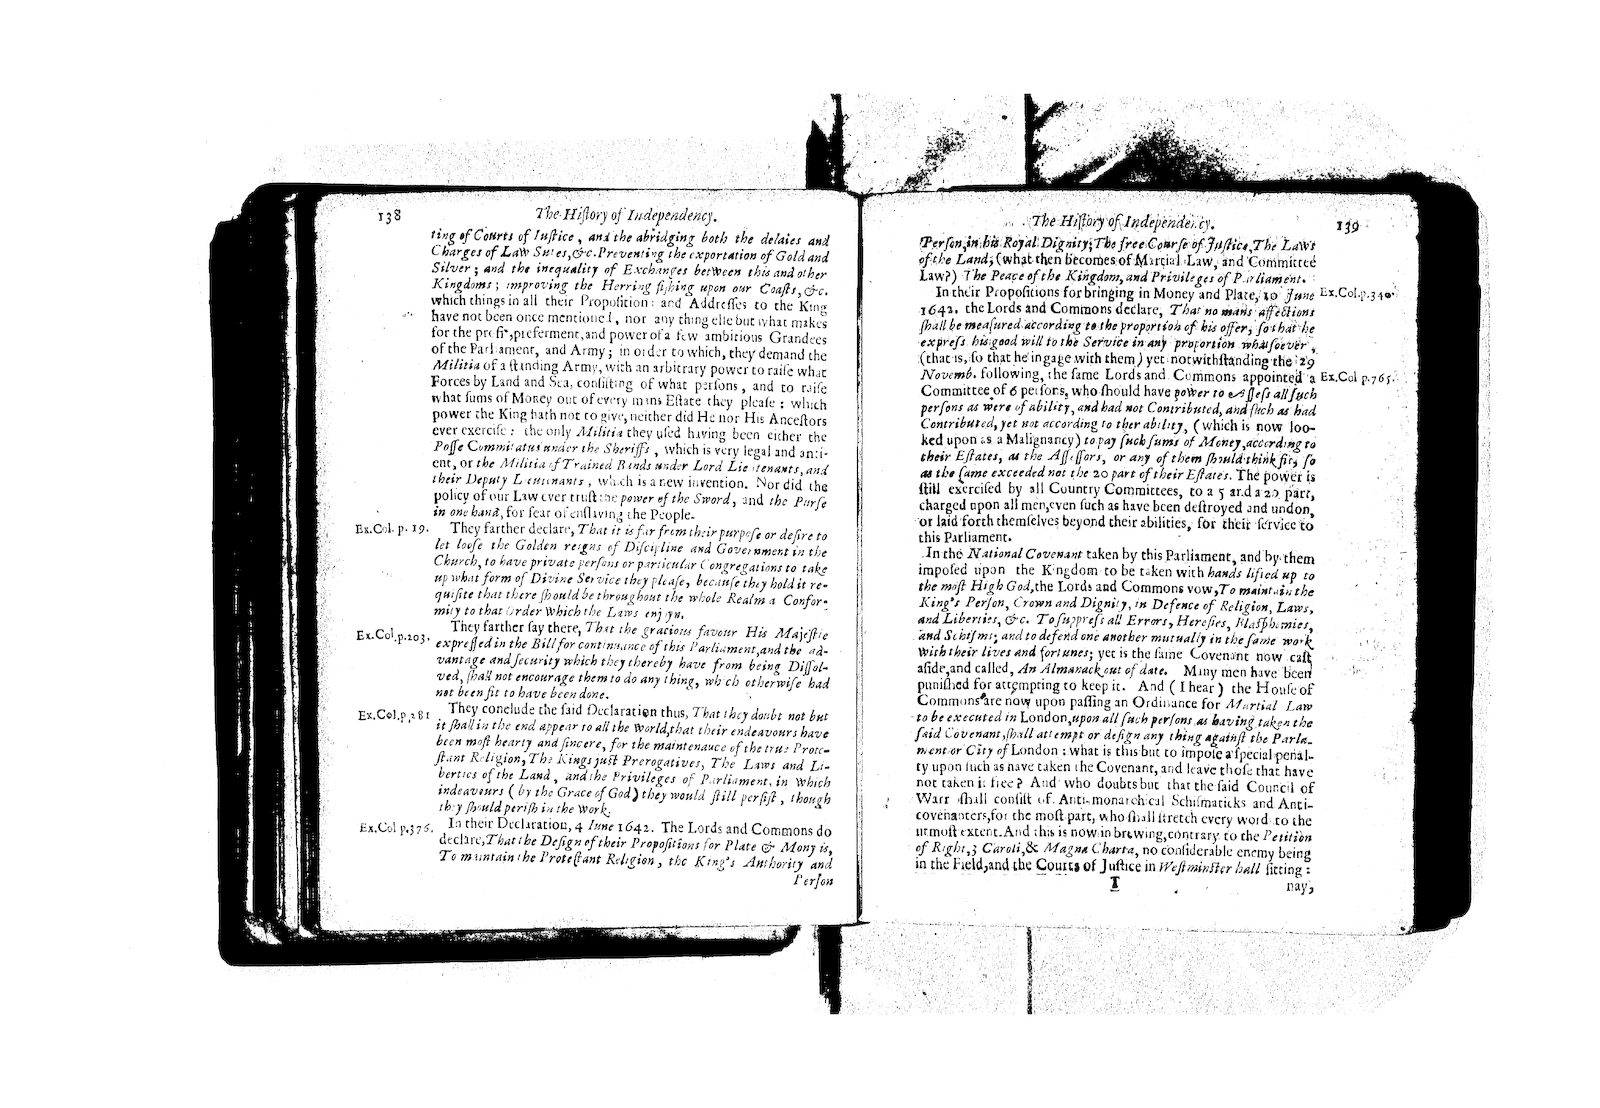 138
The History of Independency.
ting of Courts of Iustice, and the abridging both the delaies and
Charges of Law Sutes, &c. Preventing the exportation of Gold and
Silver; and the inequality of Exchanges between this and other
Kingdoms; improving the Herring fishing upon our Coasts, &c.
which things in all their Proposition: and Addresses to the King
have not been once mentioned, nor any thing else but what makes
for the profit, preferment, and power of a few ambitious Grandees
of the Parliament, and Army; in order to which, they demand the
Militia of a standing Army, with an arbitrary power to raise what
Forces by Land and Sea, consisting of what persons, and to raise
what sums of Money out of every mans Estate they please: which
power the King hath not to give, neither did He nor His Ancestors
ever exercise: the only Militia they used having been either the
Posse Commitatus under the Sheriffs, which is very legal and anti-
ent, or the Militia of Trained Bands under Lord Lieutenants, and
their Deputy Lieutenants, which is a new invention. Nor did the
policy of our Law ever trust the power of the Sword, and the Purse
in one hand, for fear of enslaving the People.
Ex.Col. p. 19. They farther declare, That it is far from their purpose or desire to
let loose the Golden reigns of Discipline and Government in the
Church, to have private persons or particular Congregations to take
up what form of Divine Service they please, because they hold it re-
quisite that there should be throughout the whole Realm a Confor-
mity to that Order Which the Laws enjoyn.
Ex.Col.p.203. They farther say there, That the gracious favour His Majestie
expressed in the Bill for continuance of this Parliament, and the ad-
vantage and security which they thereby have from being Dissol-
ved, shall not encourage them to do any thing, which otherwise had
not been fit to have been done.
Ex.Col.p,281 They conclude the said Declaration thus, That they doubt not but
it shall in the end appear to all the World, that their endeavours have
been most hearty and sincere, for the maintenance of the true Prote-
stant Religion, The Kings just Prerogatives, The Laws and Li-
berties of the Land, and the Privileges of Parliament, in Which
indeavours (by the Grace of God) they would still persist, though
they should perish in the Work.
Ex.Col p.376. In their Declaration, 4 Iune 1642. The Lords and Commons do
declare, That the Design of their Propositions for Plate & Mony is,
To maintain the Protestant Religion, the King's Authority and
Person
The History of Independency.
139
Person, in his Royal Dignity; The free Course of Justice, The Laws
of the Land; (what then becomes of Martial Law, and Committee
Law?) The Peace of the Kingdom, and Privileges of Parliament.
In their Propositions for bringing in Money and Plate, 10 June Ex.Col.p.340.
1642. the Lords and Commons declare, That no mans affections
shall be measured according to the proportion of his offer, so that he
express his good will to the Service in any proportion whatsoever,
(that is, so that he ingage with them) yet notwithstanding the 29
Novemb. following, the same Lords and Commons appointed a Ex.Col p.765.
Committee of 6 persons, who should have power to Assess all such
persons as were of ability, and had not Contributed, and such as had
Contributed, yet not according to ther ability, (which is now loo-
ked upon as a Malignancy) to pay such sums of Money, according to
their Estates, as the Assessors, or any of them should think fit, so
as the same exceeded not the 20 part of their Estates. The power is
still exercised by all Country Committees, to a 5 and a 20 part,
charged upon all men, even such as have been destroyed and undon,
or laid forth themselves beyond their abilities, for their service to
this Parliament.
In the National Covenant taken by this Parliament, and by them
imposed upon the Kingdom to be taken with hands lified up to
the most High God, the Lords and Commons vow, To maintain the
King's Person, Crown and Dignity, in Defence of Religion, Laws,
and Liberties, &c. To suppress all Errors, Heresies, Blasphemies,
and Schisms; and to defend one another mutually in the same work
With their lives and fortunes; yet is the same Covenant now cast
aside, and called, An Almanack out of date. Many men have been
punished for attempting to keep it. And (I hear) the House of
Commons are now upon passing an Ordinance for Martial Law
to be executed in London, upon all such persons as having taken the
said Covenant, shall attempt or design any thing against the Parla-
ment or City of London: what is this but to impose a special penal-
ty upon such as have taken the Covenant, and leave those that have
not taken it free? And who doubts but that the said Council of
Warr shall consist of Anti-monarchical Schismaticks and Anti-
covenanters, for the most part, who shall stretch every word to the
utmost extent. And this is now in brewing, contrary to the Petition
of Right, 3 Caroli, & Magna Charta, no considerable enemy being
in the Field, and the Courts of Justice in Westminster hall sitting:
T
nay,